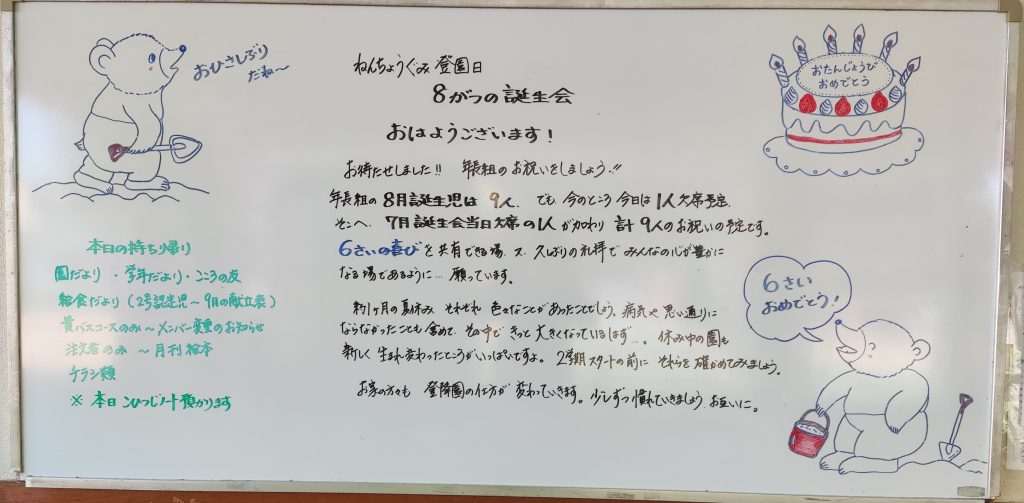 おひさしぶり
だね〜
ねんちょうぐみ 登園日
8がつの誕生会
おはようございます!
お待たせしました!! 年長組のお祝いをしましょう!!
年長組の 8月誕生児は 9人、でも、今のところ 今日は 1人欠席予定、
そこへ、7月誕生会当日欠席の1人 が加わり 計 9人のお祝いの予定です。
6さいの喜び を共有できる場、又、久しぶりの礼拝で みんなの心が豊かに
なる場であるように… 願っています。
約1ヶ月の夏休み それぞれ 色々なことがあったことでしょう。病気や思い通りに
ならなかったことも含めて、その中で きっと大きくなっているはず…。休み中の園も
新しく生まれ変わったところがいっぱいですよ。2学期スタートの前に それらを確かめてみましょう。
お家の方々も 登降園の仕方が変わっていきます。少しずつ慣れていきましょう、お互いに。
本日の持ち帰り
園だより・学年だより・こころの友
給食だより(2号認定児〜9月の献立表)
黄バスコースのみ〜メンバー変更のお知らせ
注文者のみ 〜月刊絵本
チラシ類
※ 本日 こひつじノート預かります
おたんじょうび
おめでとう
6さい
おめでとう!